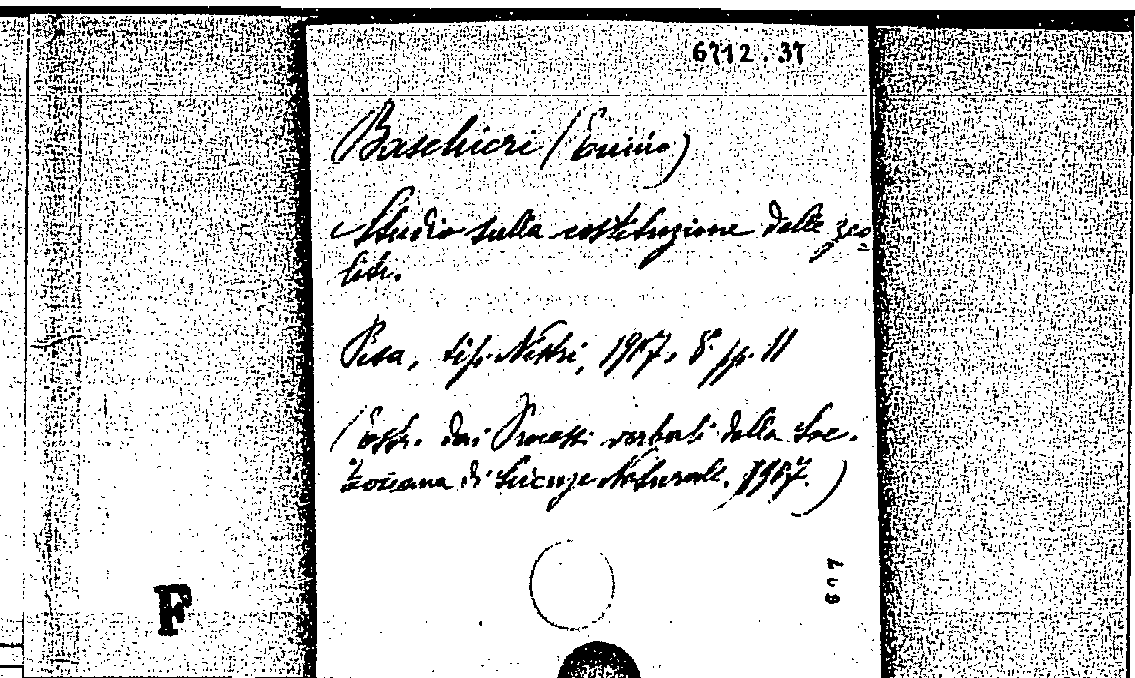 6712.37
Baschieri (Ennio)
Studio sulla costituzione delle zeo
liti.
Pisa, tip. Nistri, 1907. 8° pp. 11
(Estr. dai Processi verbali della Soc.
Toscana di Scienze Naturali. 1907.)
F